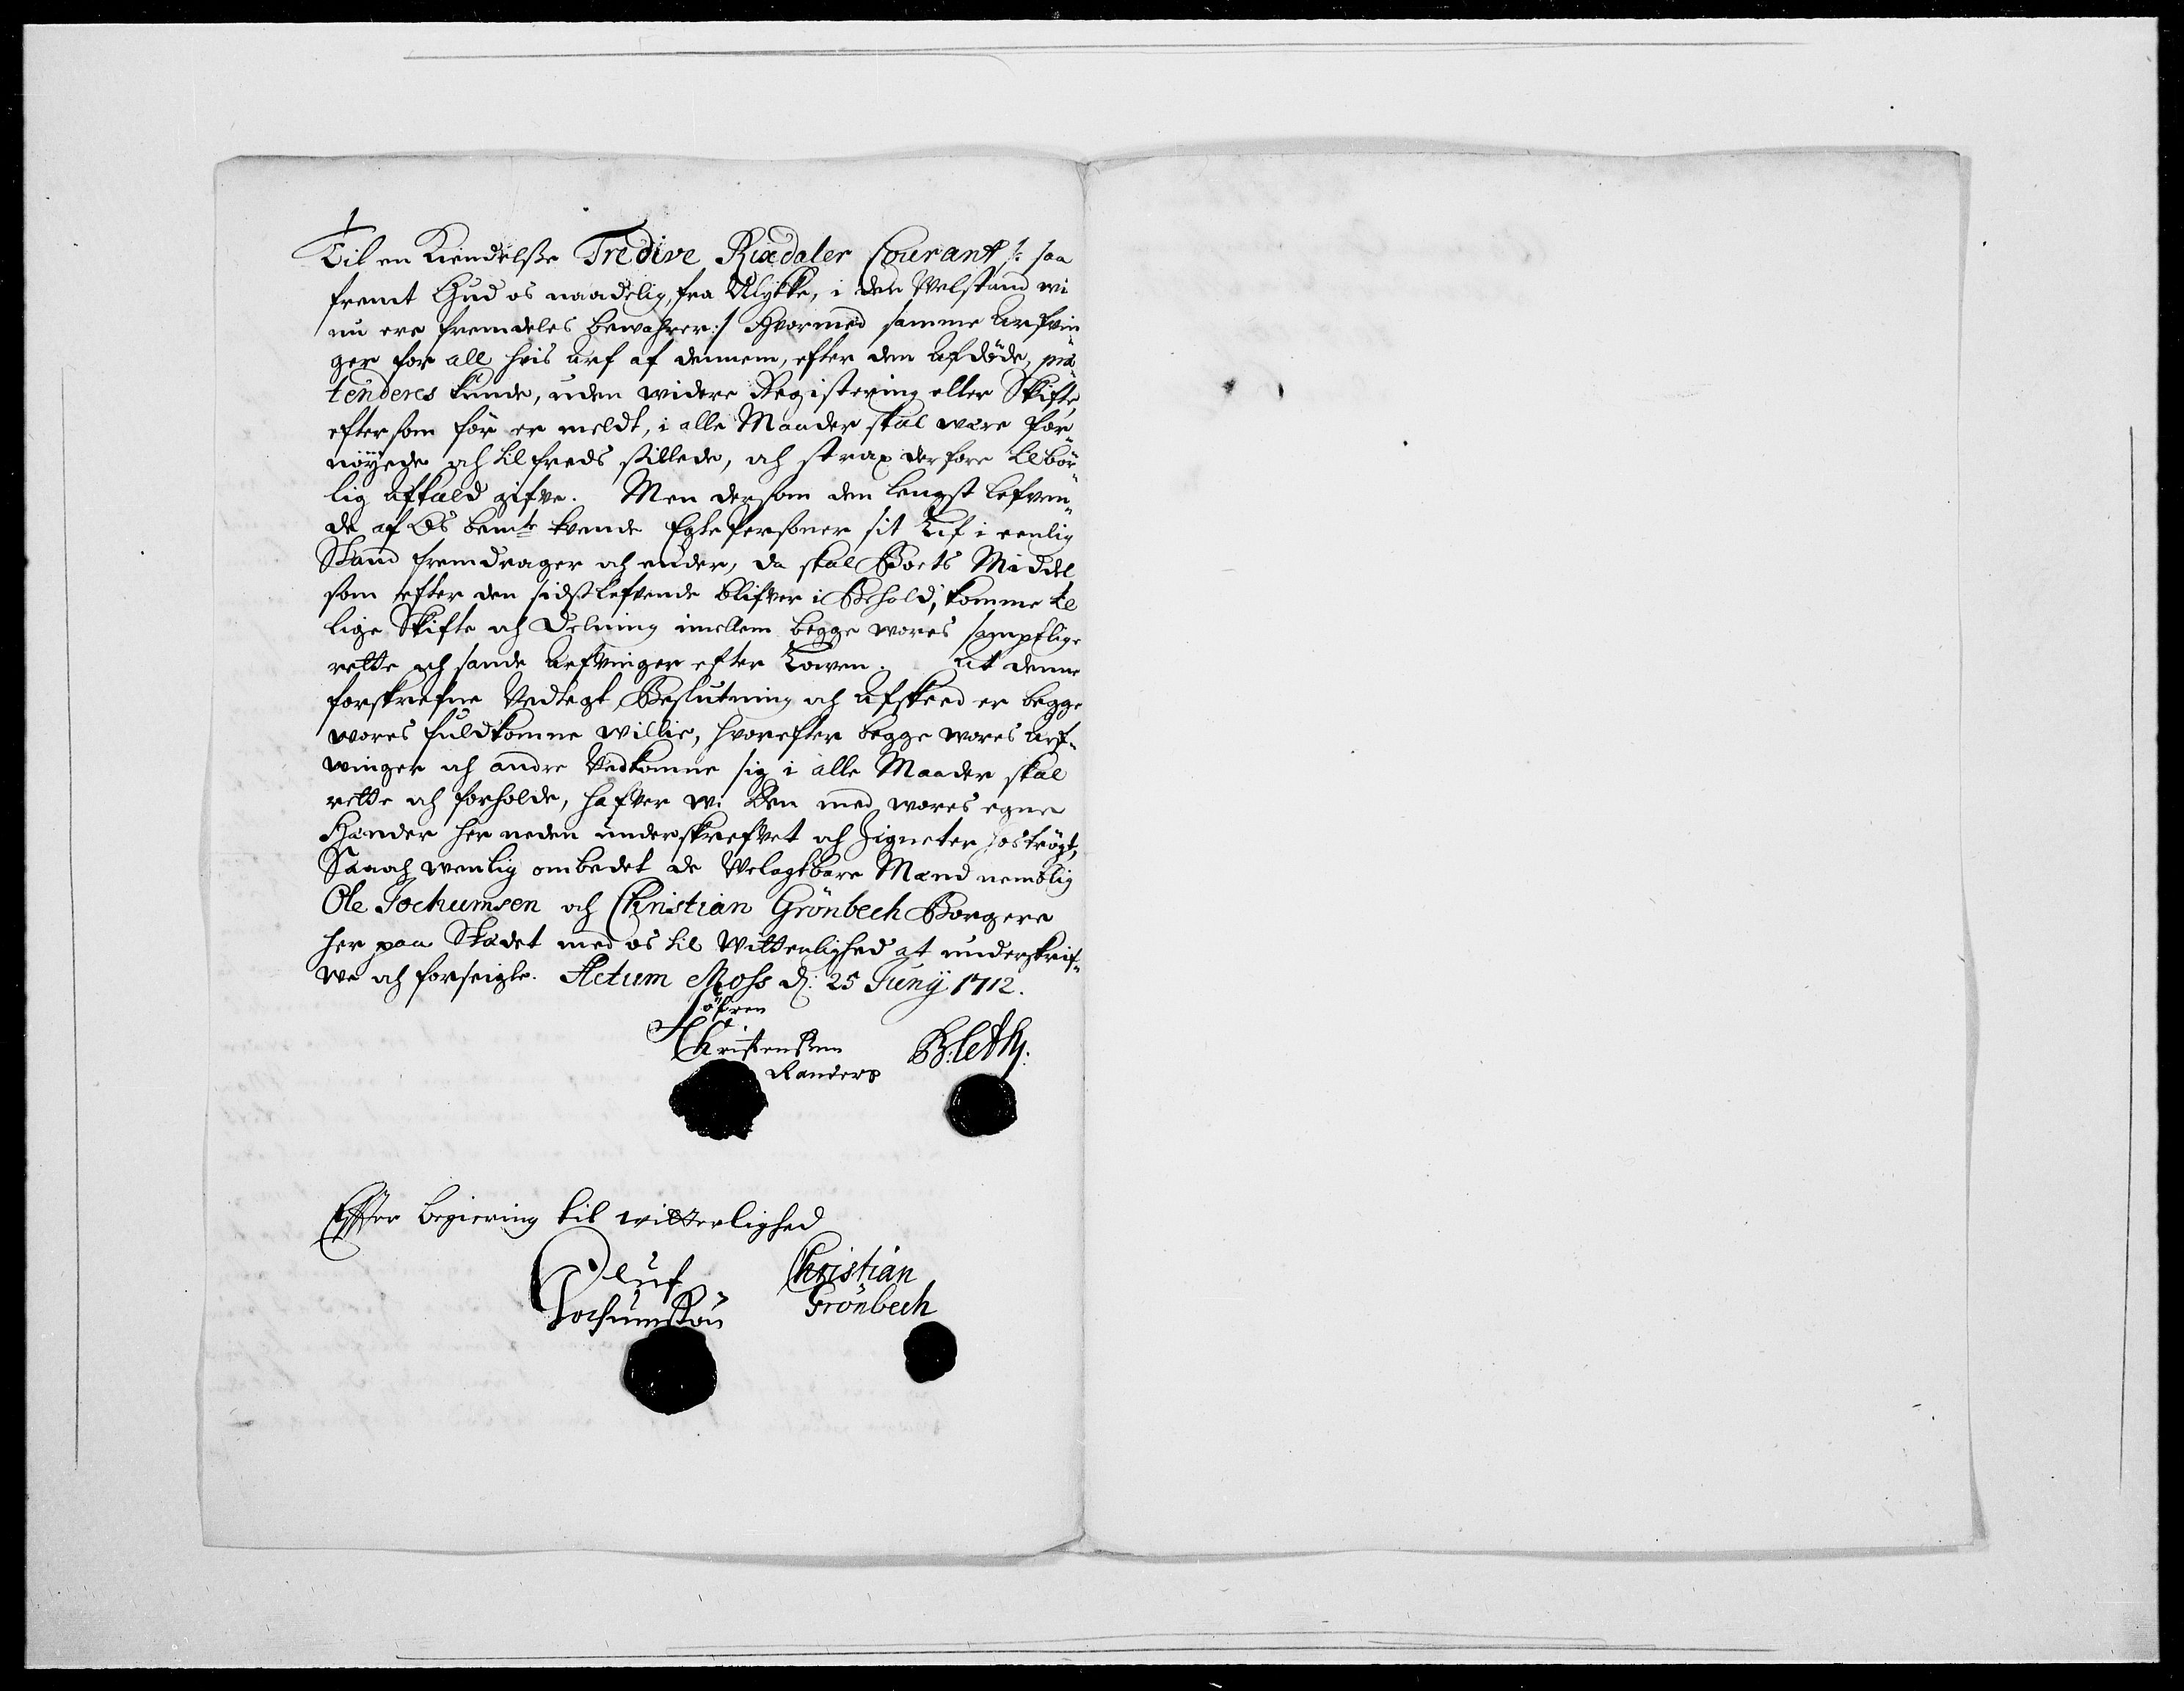 Til en Kiendelsse Tredive Rixdaler Courant /: saa
fremt Gud os naadelig, fra Ulykke, i den Velstand wi
nu ere fremdeles bewahrer :/ Hvormed samme Arfvin„
ger for all hvis Arf af dennem, efter den Afdöde, præ„
tenderes kunde, uden widere Registering eller Skifte,
eftersom för er meldt, i alle Maader skal være for„
nöyede och til freds stillede, och strax derfore tilbör„
lig Affald gifve. Men dersom den lengst lefven„
de af Os bemte tvende Egte Personer sit Lif i eenlig
Stand fremdrager och ender, da skal Boets Middel,
som efter den sidst lefvende blifver i Behold, komme til
lige Skifte och Delning imellem begge wores sampflige
rette och sande Arfvinger efter Lowen. At denne
forskrefne Vedtegt, Beslutning och Afskeed er begge
wores fuldkomne willie, hvorefter begge wores Arf„
winger och andre Vedkomne sig i alle Maader skal
rette och forholde, hafver wi Den med wores egne
Hænder her neden underskrefvet och Zigneter hoströgt,
Saa och wenlig ombedet de Velagtbare Mænd nemblig
Ole Jochumsen och Christian Grönbech Borgere
her paa Stædet med os til Vitterlighed at underskrif„
we och forseigle. Actum Moss d: 25 Junÿ 1712.
Söfren
Christensen
Randers
B: Leth.
Effter begiering til witterlighed
Oluf
Jochumsön
Christian
Grönbech